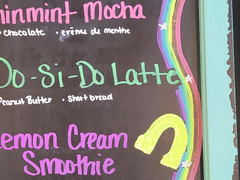 inmint Mocha
• Chocolate • crème de menthe
Do-Si-Do Latte
Peanut Butter • Shortbread
Lemon Cream
Smoothie